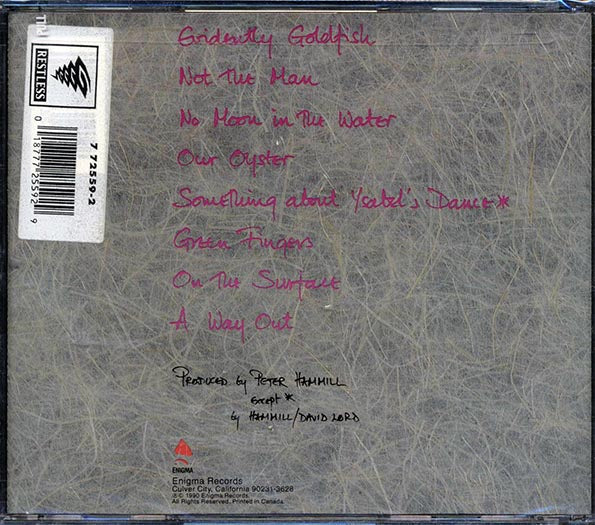 Evidently Goldfish
Not The Man
No Moon in The Water
Our Oyster
Something about Ysabel's Dance *
Green Fingers
On The Surface
A Way Out
PRODUCED by PETER HAMMILL
EXCEPT *
by HAMMILL/DAVID LORD
ENIGMA
Enigma Records
Culver City, California 90231-3628
℗ © 1990 Enigma Records.
All Rights Reserved. Printed in Canada.
RESTLESS
7 72559-2
0 18777 25592 9